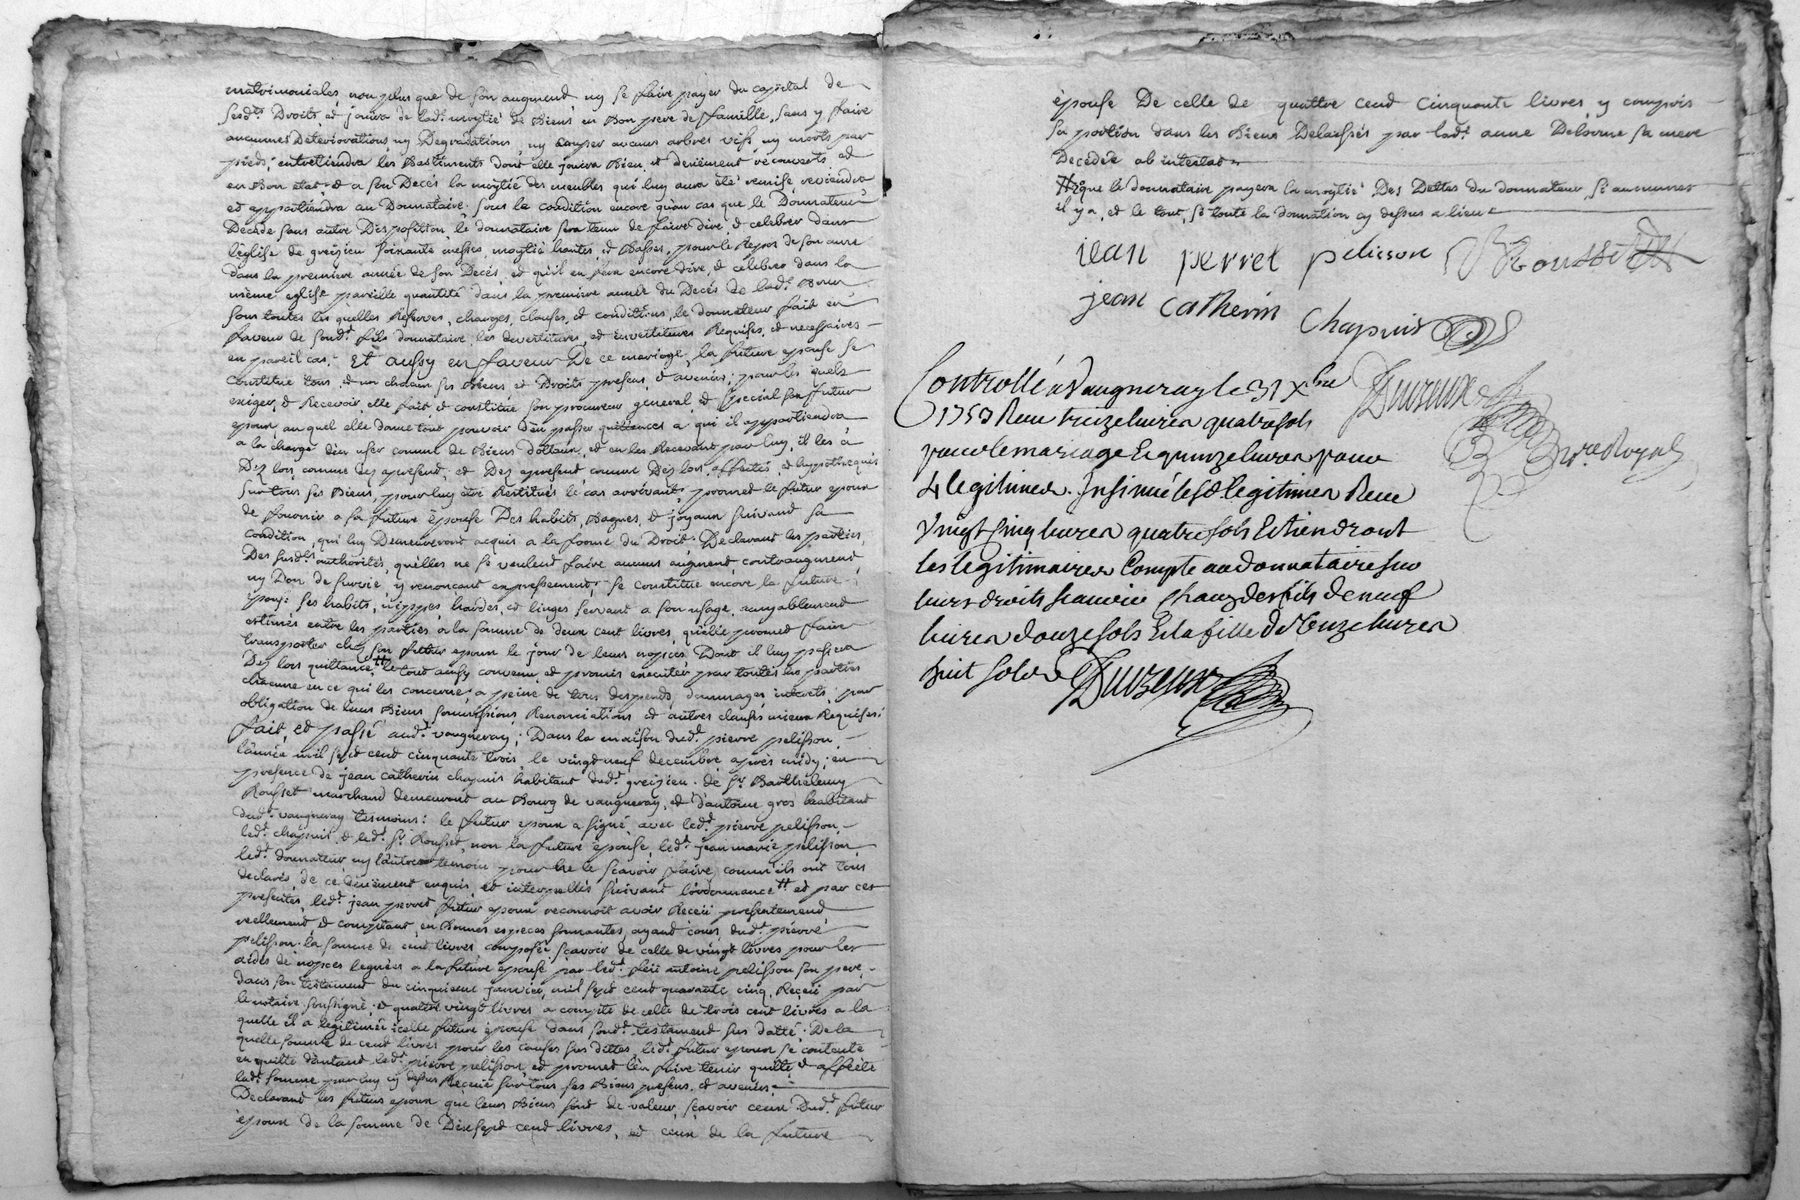 matrimoniales, non plus que de son augment, ny se faire payer du capital de
sesd.ts Droits, et jouira de lad.e moytié de Biens en Bon pere de famille, sans y faire
aucunnes Deteriorations, ny Degradations, ny couper aucuns arbres vifs, ny morts par
pieds; entretiendra les Bastiments dont elle jouira Bien et deüement récouverts et
en Bon etat; et a son Decès la moytié des meubles qui luy aura été remise, reviendra
et appartiendra au Donnataire. sous la condition encore qu'au cas que le Donnateur
Decede sans autre Disposition le donnataire sera tenu de faire dire, et celebrer dans
l'église de greizieu soixante messes, moytié hautes, et Basses, pour le Repos de son ame
dans la premiere année de son Decès, et qu'il en fera encore dire, et celebrer dans la
même eglise pareille quantité dans la premiere année du Decès de lad.e
sous toutes les quelles Reserves, charges, clauses, et conditions, le donnateur fait en
faveur de sond.t fils donnataire, les devestitures, et investitures Requises, et necessaires
en pareil cas. Et aussy en faveur De ce mariage, la future epouse se
constitue tous, et un chacun ses Biens et Droits presens, et avenirs; pour les quels
exiger, et Recevoir, elle fait, et constitue son procureur general, et special son futur
epoux, au quel elle donne tout pouvoir d'en passer quittances a qui il appartiendra
a la charge d'en user comme de Biens dottaux, et en les Recevant par luy, il les a
Dez lors, comme dez apresent, et Dez apresent comme Dez lors, affectés, et hypothequés
sur tous ses Biens, pour luy être Restitués le cas arrivant; promet le futur epoux
de fournir a sa future épouse Des habits, Bagues, et joyaux suivant sa
condition, qui luy Demeureront acquis a la forme du Droit. Déclarant les parties,
Des susd.tes authorités, qu'elles ne se veulent faire aucuns augment, contraugment,
ny Don de survie, y renonçant expressement; se constitue encore la future
épouse ses habits, nippes, hardes, et linges servant a son usage, amyablement
estimés entre les parties, a la somme de deux cent livres, qu'elle promet faire
transporter chez son futur epoux le jour de leurs nopces Dont il luy passera
Dez lors quittance. le tout aussy convenu, et promis executer par toutes les parties
chacune en ce qui les concerne, a peine de tous despends, dommages interets; par
obligation de leurs Biens, soumissions, Renonciations et autres clauses mieux Requises.
fait, et passé aud.t vaugneray, Dans la maison dud.t pierre pelisson,
l'année mil sept cent cinquante trois, le vingt neuf decembre après midy; en
presence de jean catherin chapuis habitant dud.t greizieu. de s.r Barthelemy
Rousset marchand demeurant au Bourg de vaugneray, et d'antoine gros habitant
dud.t vaugneray temoins: le futur epoux a signé avec led.t pierre pelisson,
led.t chapuis, et led.t s.r Rousset, non la future epouse, led.t jean marie pelisson,
led.t donnateur ny l'autre temoin pour ne le scavoir faire, comm'ils ont tous
declaré, de ce deüement enquis, et interpellés suivant l'ordonnance et par ces
presentes, led.t jean perret futur epoux reconnoit avoir Receü presentement,
reellement et comptant, en Bonnes especes sonnantes, ayant cours, dud.t pierre
pelisson la somme de cent livres, composée scavoir de celle de vingt livres pour les
aides de nopces leguées a la future epouse par led.t feü antoine pelisson son pere,
dans son testament du cinquieme janvier, mil sept cent quarante cinq, Receü par
le notaire soussigné; et quatre vingt livres a compte de celle de trois cent livres a la
quelle il a legitimée icelle future épouse dans sond.t testament sus datté. De la
quelle somme de cent livres pour les causes sus dittes, led.t futur epoux se contente
en quitte d'autant led.t pierre pelisson, et promet l'en faire tenir quitte et affecte
lad.e somme par luy cy dessus Receuë sur tous ses Biens presens, et avenirs.
Declarant les futurs epoux que leurs Biens sont de valeur, scavoir ceux Dud.t futur
époux de la somme de Dix sept cent livres, et ceux de la future
épouse De celle de quattre cent cinquante livres, y compris
sa portion dans les Biens Delaissés par lad.e anne Delorme sa mere
Decedée ab intestat
que le donnataire payera la moytié Des Dettes du donnateur, si aucunnes
il y a, et le tout, si toute la donnation cy dessus a lieu
jean perret pelisson Rousset
jean catherin Chapuis
Controllé a Vaugneray le 31 Xbre Duvreux
1753 Reçu treize livres quatre sols Nore Royal
pour le mariage Et quinze livres pour
4 legitimes. Insinué lesd legitimes Reçu
Vingt Cinq livres quatre sols Et tiendront
les legitimaires Compte au donnataire sur
leurs droits scavoir Chacun des fils de neuf
livres douze sols Et la fille de onze livres
huit sols Duvreux